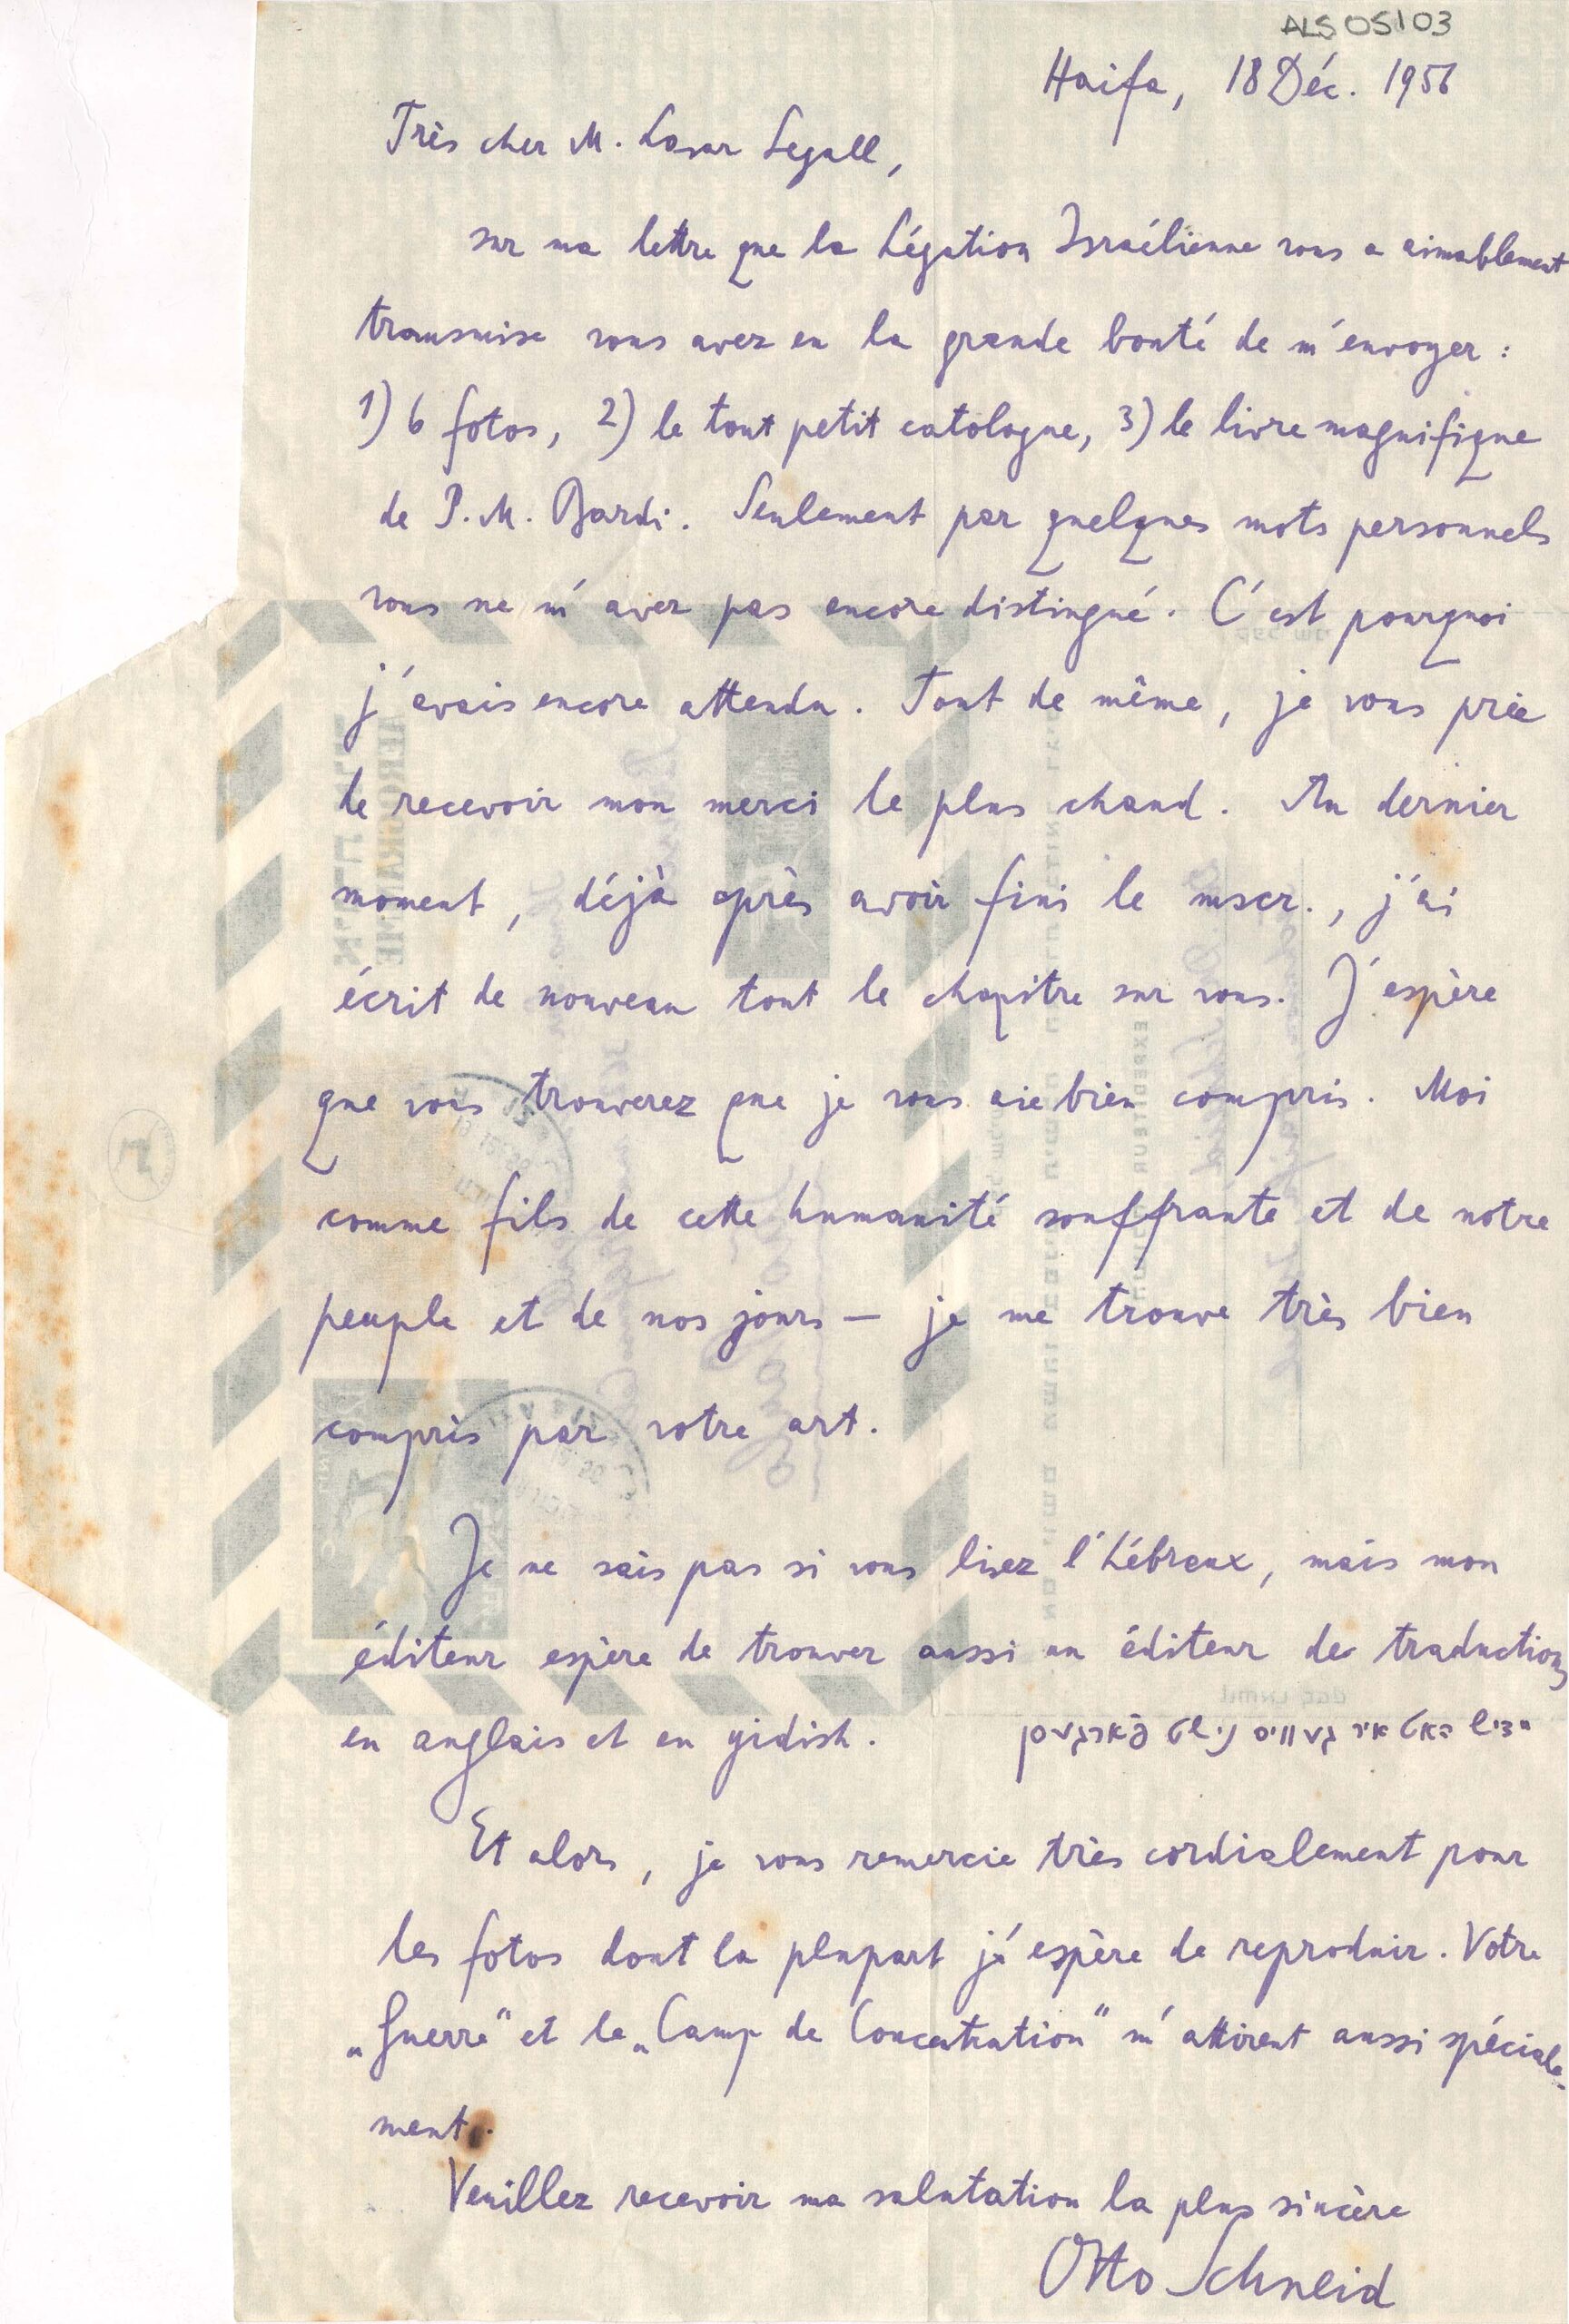 ALS 05103
Haifa, 18 Déc. 1956
Très cher M. Lasar Segall,
sur ma lettre que la Légation Israélienne vous a aimablement
transmise vous avez eu la grande bonté de m'envoyer :
1) 6 fotos, 2) le tout petit catalogue, 3) le livre magnifique
de P. M. Bardi. Seulement par quelques mots personnels
vous ne m'avez pas encore distingué. C'est pourquoi
j'avais encore attendu. Tout de même, je vous prie
de recevoir mon merci le plus chaud. Au dernier
moment, déjà après avoir fini le mscr., j'ai
écrit de nouveau tout le chapitre sur vous. J'espère
que vous trouverez que je vous aie bien compris. Moi
comme fils de cette humanité souffrante et de notre
peuple et de nos jours — je me trouve très bien
compris par votre art.
Je ne sais pas si vous lisez l'Hébreux, mais mon
éditeur espère de trouver aussi un éditeur de traductions
en anglais et en yidish.
Et alors, je vous remercie très cordialement pour
les fotos dont la plupart j'espère de reproduir. Votre
„Guerre" et le „Camp de Concentration" m'attirent aussi spéciale-
ment.
Veuillez recevoir ma salutation la plus sincère
Otto Schneid